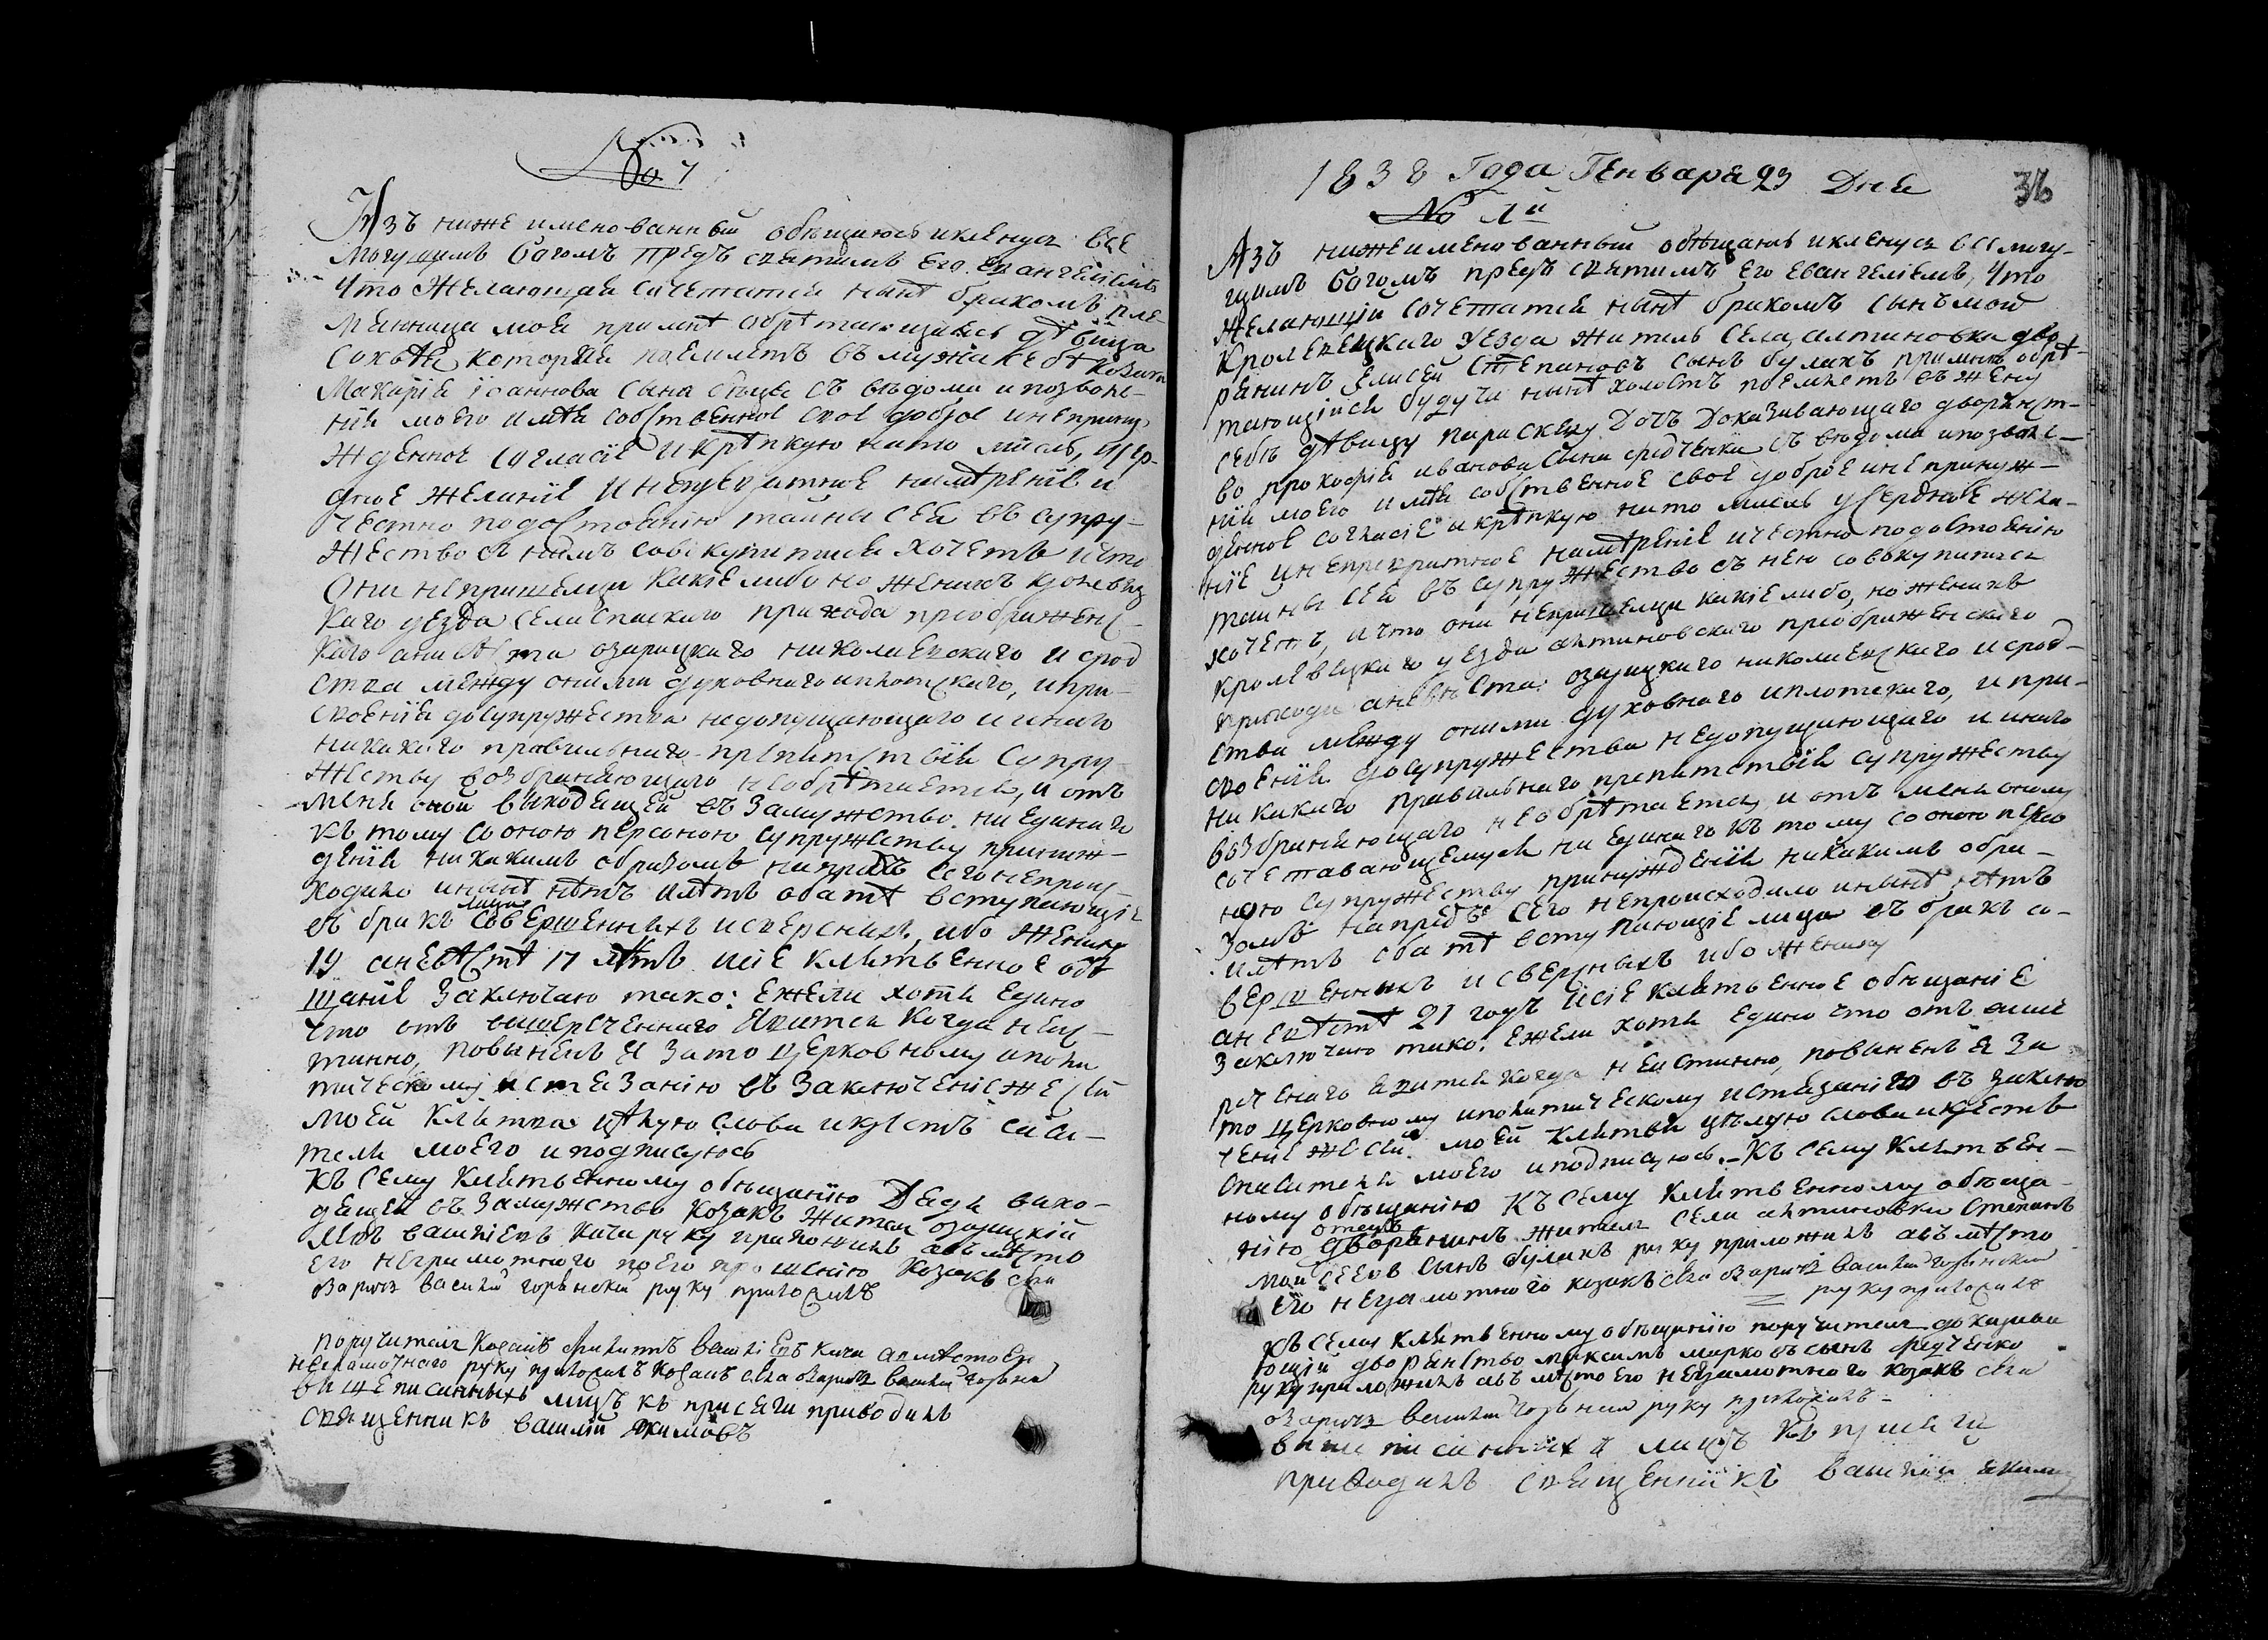 No 7
Азъ ниже именованный обещаюсь и кленуся все
могущимъ богомъ предъ святимъ его евангелиемъ
что желающая сочетатися нынѣ бракомъ пле-
мянница моя при мнѣ обрѣтающаясь дѣвица
которая поемлетъ въ мужа себѣ козака
Макарія іоаннова сына съ вѣдома и позволе-
нія моего имѣя собственное свое доброе и неприну-
жденное согласіе и крѣпкую на то мисль, усер-
дное желаніе и непревратное намѣреніе и
честно по достоянію тайны сея въ супру-
жество съ нимъ совокупитися хочетъ и что
они не пришелци какіе либо но женихъ кролевец
каго уезда села спаского прихода преображенс-
каго а невѣста озарицкаго николаевскаго и срод
ства между оними духовнаго и плотскаго, и при-
своенія до супружества недопущающаго и инаго
никакаго правильнаго препятствія супру-
жеству возбраняющаго необрѣтается, и отъ
мене оной выходящей въ замужство ни единаго
къ тому со оною персоною супружеству принуж-
денія никакимъ образомъ напредъ сего непроис-
ходило и нынѣ нѣтъ и лѣтъ оба тѣ вступающіе
въ бракъ лица совершенныхъ и сверсныхъ, ибо жениху
19 а невѣстѣ 17 лѣтъ и сіе клятвенное обѣ
щаніе заключаю тако: ежели хотя едино
что отъ вишереченнаго явится когда неис-
тинно, повиненъ я за то церковному и поли
тическому истязанію въ заключеніе же сей
моей клятва цѣлую слова и крестъ спаси-
теля моего и подписуюсь
Къ сему клятвенному обещанію дядя выхо-
дящей въ замужство козакъ житель озарицкій
василіевъ руку приложилъ авъ мѣсто
его неграмотного по его прошенію козакъ села
озаричъ василій горѣнскій руку приложилъ
поручитель козакъ василіевъ а вмѣсто его
неграмотного руку приложилъ козакъ села озаричъ василій
вишеписанныхъ лицъ къ присяги приводилъ
священникъ василій якимовъ
1838 Года Генваря 23 Дня
36
No 1й
Азъ нижеименованный обѣщаюсь и кленуся всемогу-
щимъ богомъ предъ святимъ его евангелиемъ, что
желающій сочетатся нынѣ бракомъ сынъ мой
кролевецкаго уезда житель села алтиновки дво-
ранинъ елисей степановъ сынъ булахъ при мнѣ обрѣ-
тающійся будучи нынѣ холостъ поемлетъ въ жену
себѣ дѣвицу параскеву дочь доказивающаго дворянст-
во прокофія иванова сына федченка съ ведома и позволе-
нія моего имѣя собственное свое доброе и непринуж-
денное согласіе и крѣпкую на то мисль усердное жела-
ніе и непревратное намѣреніе и честно по достоянію
тайны сея въ супружество съ нею совокупитися
хочетъ, и что они непришелци какіе либо, но женихъ
кролевецкаго уезда алтиновскаго преображенскаго
прихода а невѣста озарицкаго николаевскаго и срод-
ства между оними духовнаго и плотскаго, и при-
своенія до супружества недопущающаго и инаго
никакаго правильнаго препятствія супружеству
возбраняющаго необрѣтается, и отъ меня оному
сочетавающемуся ни единаго къ тому со оною персо
ною супружеству принужденія никакимъ обра-
зомъ напредъ сего непроисходило и нынѣ нѣтъ
и лѣтъ оба тѣ вступающіе лица въ бракъ со-
вершенныхъ и сверсныхъ ибо жениху
а невѣстѣ 21 годъ и сіе клятвенное обещаніе
заключаю тако: ежели хотя едино что отъ више
реченаго явится когда неистинно, повиненъ я за
то церковному и политическому истязанію въ заклю
ченіе же сей моей клятви цѣлую слова и крестъ
спасителя моего и подписуюсь.- Къ сему клятвен-
ному обещанію Къ сему клятвенному обеща-
нію отецъ дворянинъ житель села алтиновки степанъ
сынъ булахъ руку приложилъ авъ мѣсто
его неграмотного козакъ села озаричъ василій горѣнскій
руку приложилъ
Къ сему клятвенному обещанію поручитель доказива
ющій дворянство максимъ марковъ сынъ федченко
руку приложилъ авъ мѣсто его неграмотного козакъ села
озаричъ василій горѣнскій руку приложилъ -
више писанныхъ лицъ къ присяги
приводилъ священникъ василій якимов